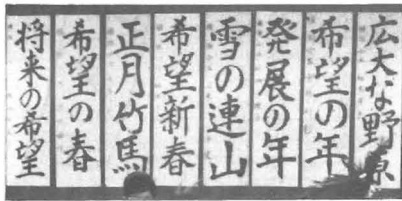 広大な野原
希望の年
発展の年
雪の連山
希望新春
正月竹馬
希望の春
将来の希望